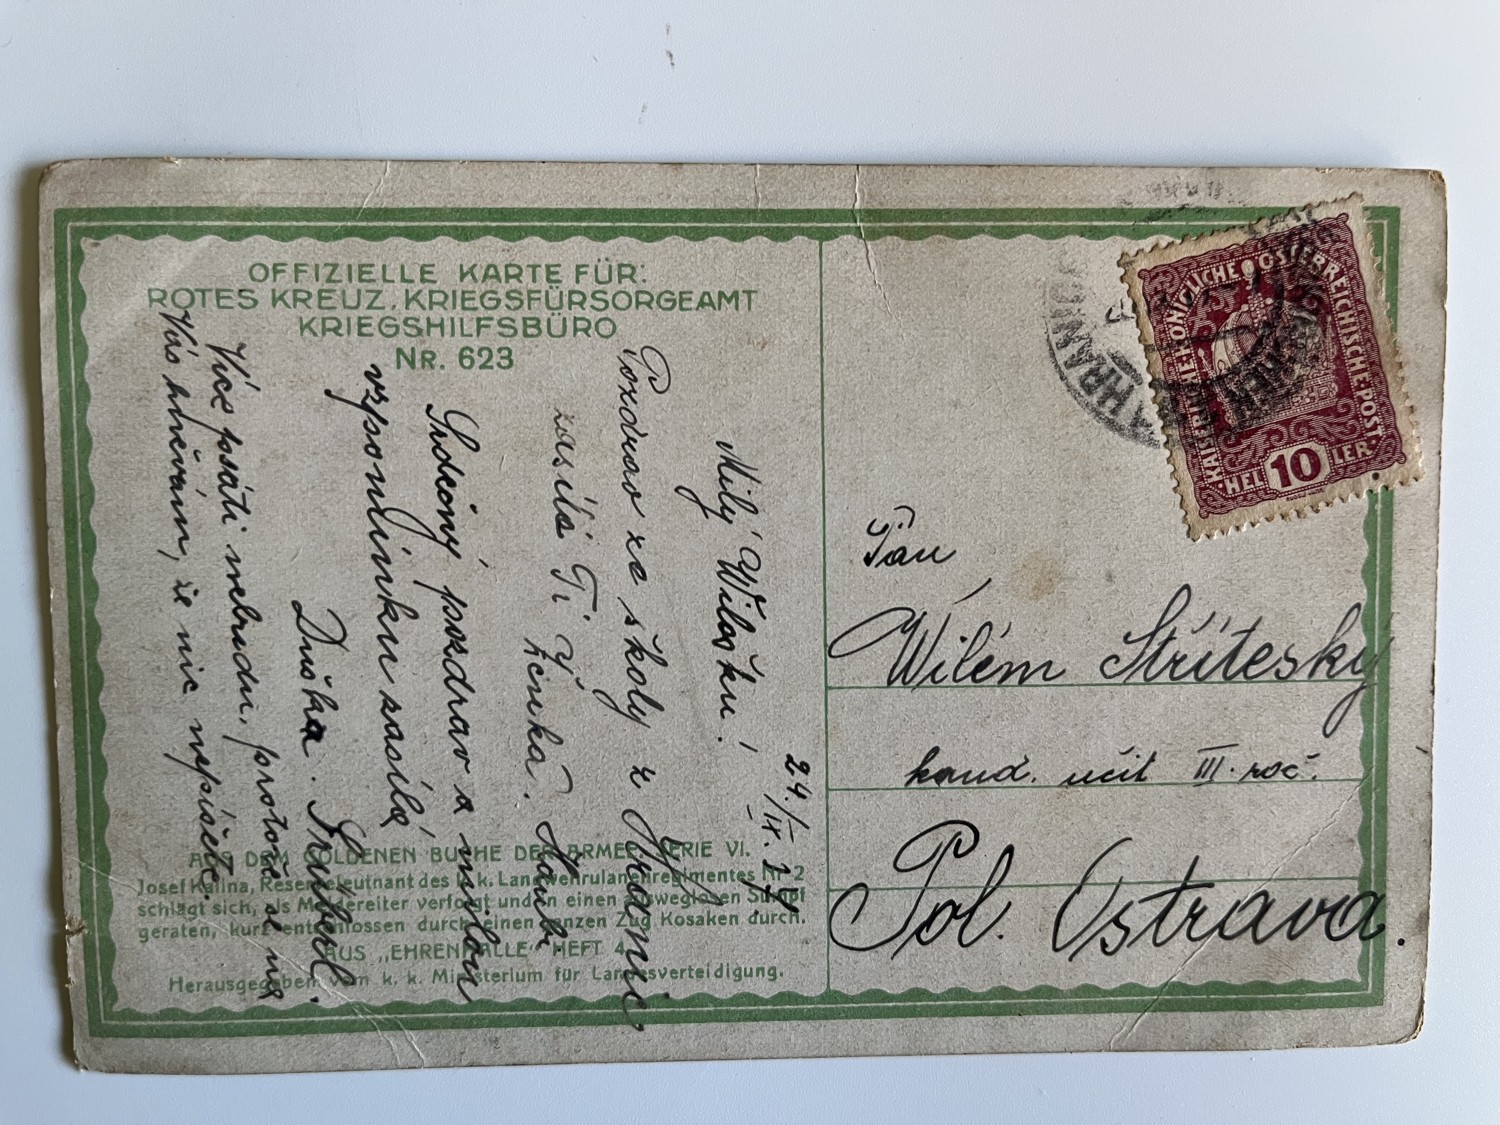 OFFIZIELLE KARTE FÜR:
ROTES KREUZ, KRIEGSFÜRSORGEAMT
KRIEGSHILFSBÜRO
NR. 623
24./IX. 17
Milý Wilošku!
Pozdrav ze školy z Hranic
zasílá Ti Ženka.
Srdečný pozdrav a milou
vzpomínku zasílá
Duška.
Více psáti nebudu, protože se na
Vás hněvám, že nic nepíšete.
AUS DEM GOLDENEN BUCHE DER ARMEE, SERIE VI.
Josef Kalina, Reserveleutnant des k. k. Landwehrulanenregimentes Nr. 2
schlägt sich, als Meldereiter verfolgt und in einen ausweglosen Sumpf
geraten, kurz entschlossen durch einen ganzen Zug Kosaken durch.
AUS „EHRENHALLE“ HEFT 4.
Herausgegeben vom k. k. Ministerium für Landesverteidigung.
KAISERLICHE KÖNIGLICHE ÖSTERREICHISCHE POST
HEL 10 LER
Pan
Wilém Střítesky
kand. učit III. roč.
Pol. Ostrava.